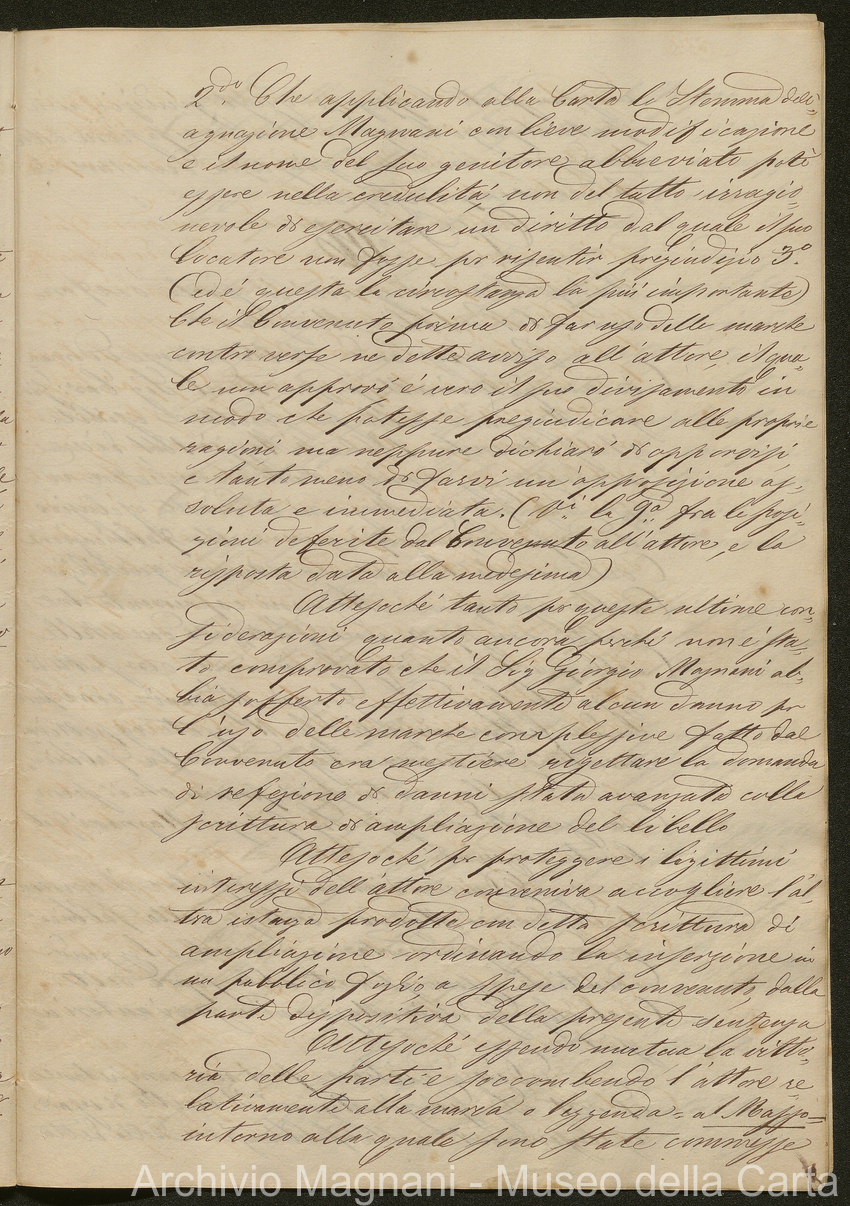 2.do Che applicando alla Carta lo Stemma dell'
agnazione Magnani con lieve modificazione
e il nome del suo genitore abbreviato potè
essere nella credulità non del tutto irragio-
nevole di esercitare un diritto dal quale il suo
locatore non fosse per risentir pregiudizio 3.o
(ed è questa la circostanza la più importante)
Che il Convenuto prima di far uso delle marche
controverse ne dette avviso all'attore, il qua-
le non approvò è vero il suo divisamento in
modo che potesse pregiudicare alle proprie
ragioni ma neppure dichiarò di opporvisi
e tanto meno di farvi un'opposizione as-
soluta e immediata. (V.i la 9.a fra le posi-
zioni deferite dal Convenuto all'attore, e la
risposta data alla medesima)
Attesochè tanto per queste ultime con-
siderazioni quanto ancora perchè non è sta-
to comprovato che il Sig Giorgio Magnani ab-
bia sofferto effettivamente alcun danno per
l'uso delle marche complessive fatto dal
Convenuto era mestiere rigettare la domanda
di refezione di danni stata avanzata colla
scrittura di ampliazione del libello
Attesochè per proteggere i legittimi
interessi dell'attore conveniva accogliere l'al-
tra istanza prodotta con detta scrittura di
ampliazione ordinando la inserzione in
un pubblico foglio a spese del convenuto, dalla
parte dispositiva della presente sentenza
Attesochè essendo mutua la vitto-
ria delle parti e soccombendo l'attore re
lativamente alla marca o leggenda = al Masso =
intorno alla quale sono state commesse
Archivio Magnani - Museo della Carta